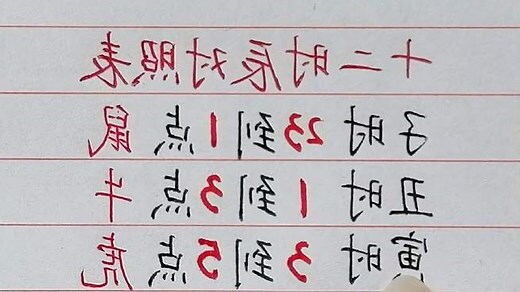 十二时辰对照表
子时 23到1点 鼠
丑时 1到3点 牛
寅时 3到5点 虎